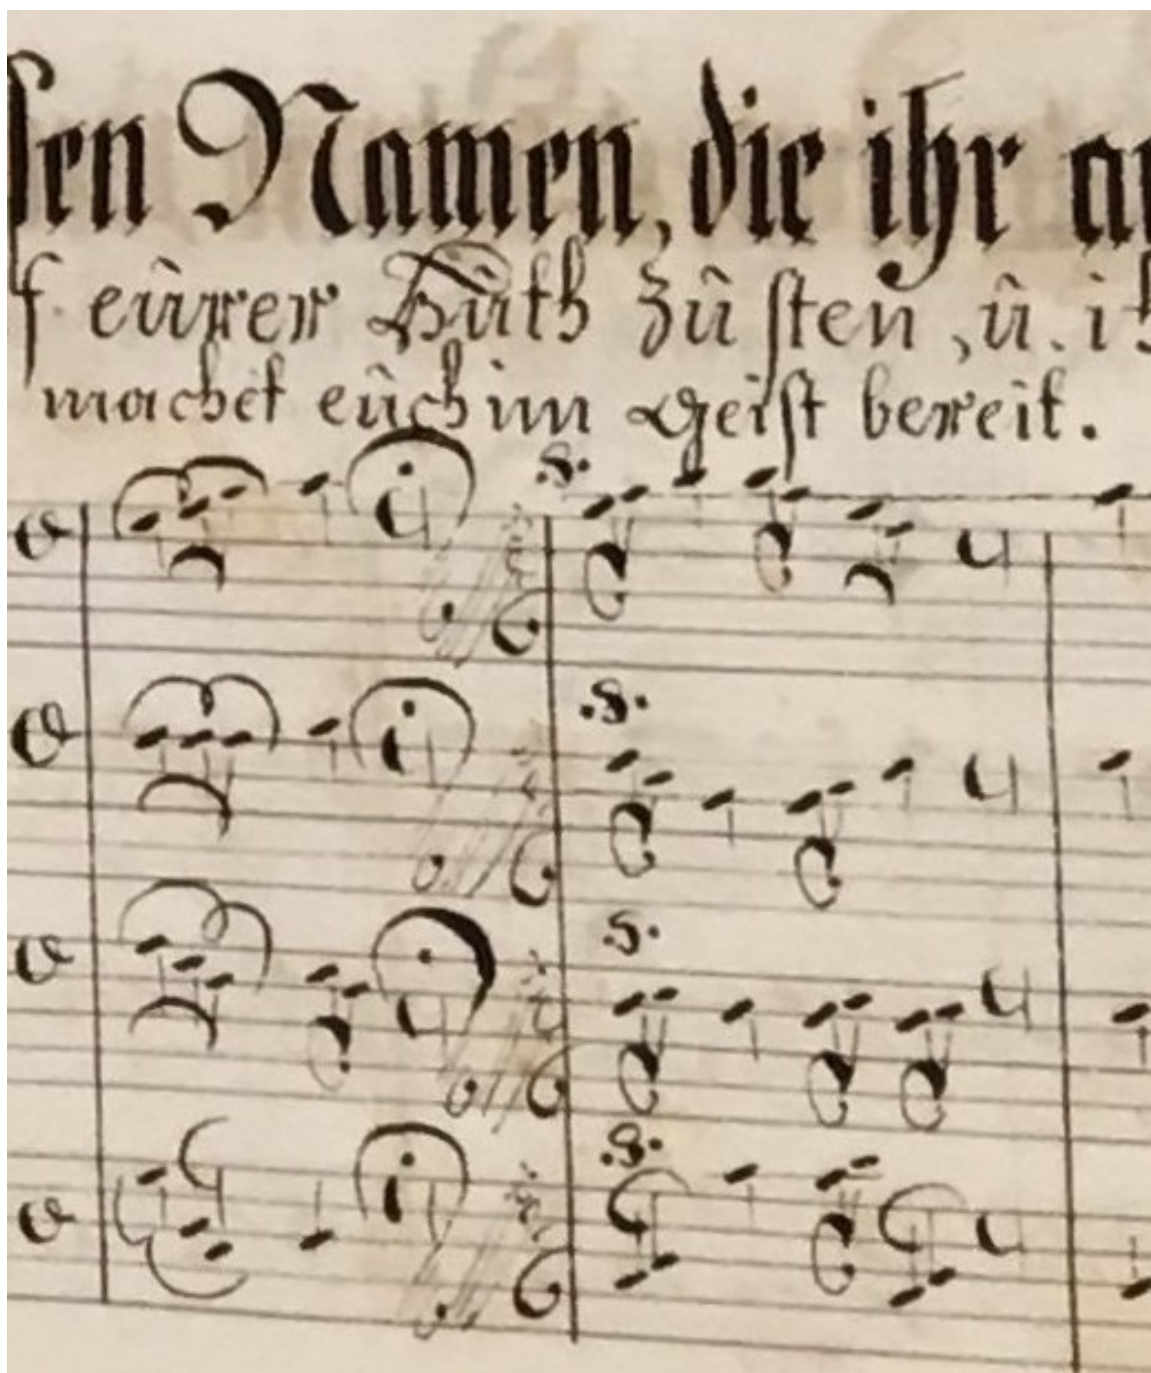 ſen Namen, die ihr
f eürer Hüth zü ſten, ü.
machet eüch im Geiſt bereit.
.s.
.s.
.s.
.s.